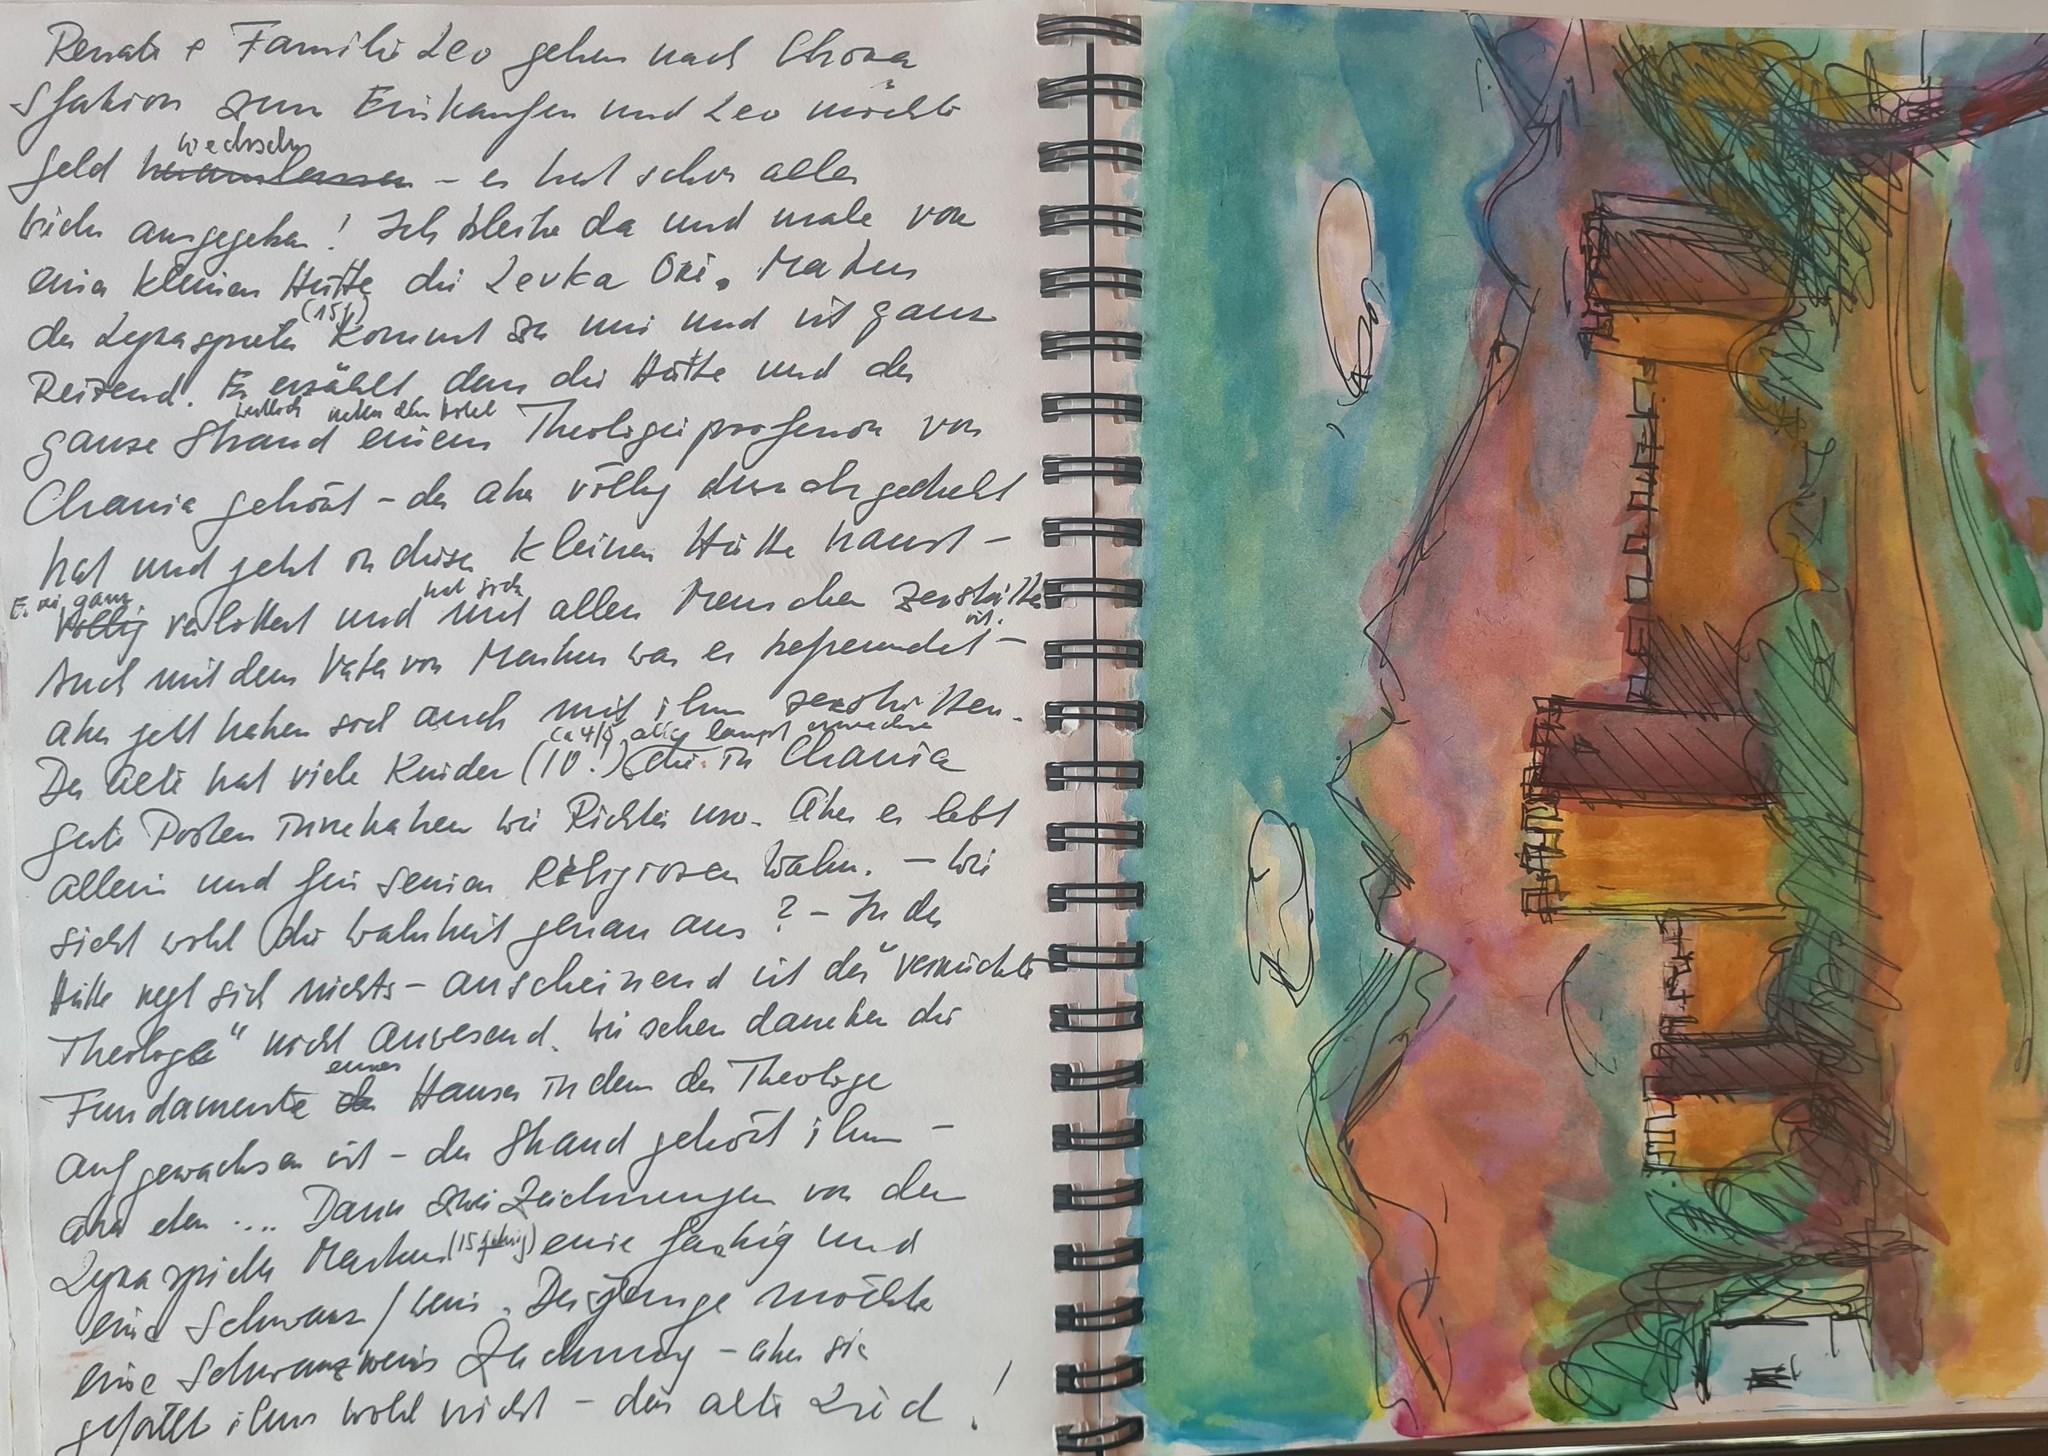 Renate + Familie Leo gehen nach Chora
Sfakion zum Einkaufen und Leo möchte
wechseln
Geld - er hat schon alles
wieder ausgegeben! Ich bleibe da und male von
einer kleinen Hütte die Levka Ori. Markus
(15 j)
der Lyraspieler kommt zu mir und ist ganz
Reizend. Er erzählt dass die Hütte und der
westlich neben dem Hotel
ganze Strand einem Theologieprofessor von
Chania gehört - der aber völlig durchgedreht
hat und jetzt in dieser kleinen Hütte haust -
Er sei ganz hat sich
völlig verlottert und mit allen Menschen zerstritten
ist.
Auch mit dem Vater von Markus war er befreundet -
aber jetzt haben sich auch mit ihm zerstritten.
ca 4/5 alle längst erwachsen
Der Alte hat viele Kinder (10!) die in Chania
gute Posten innehaben wie Richter usw. Aber er lebt
allein und für seinen Religiösen Wahn. - Wie
sieht wohl die Wahrheit genau aus? - In der
Hütte regt sich nichts - anscheinend ist der "verrückte
Theologe" nicht anwesend. Wir sehen daneben die
eines
Fundamente des Hauses in dem der Theologe
aufgewachsen ist - der Strand gehört ihm -
aber eben .... Dann zwei Zeichnungen von dem
Lyraspieler Markus (15 jährig) eine farbig und
eine Schwarz/weis. Der Junge möchte
eine Schwarzweis Zeichnung - aber sie
gefällt ihm wohl nicht - das alte Lied!